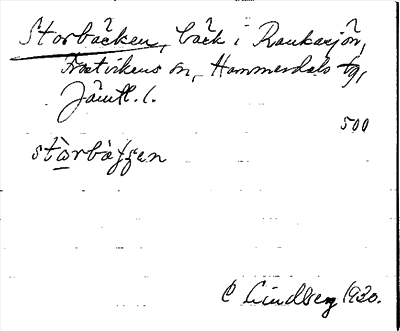 Storbäcken, bäck i Rankasjön,
Frostvikens sn, Hammerdals tg,
Jämtl. l.
500
stɑ̀rbàʃʃen
C Lindberg 1930.